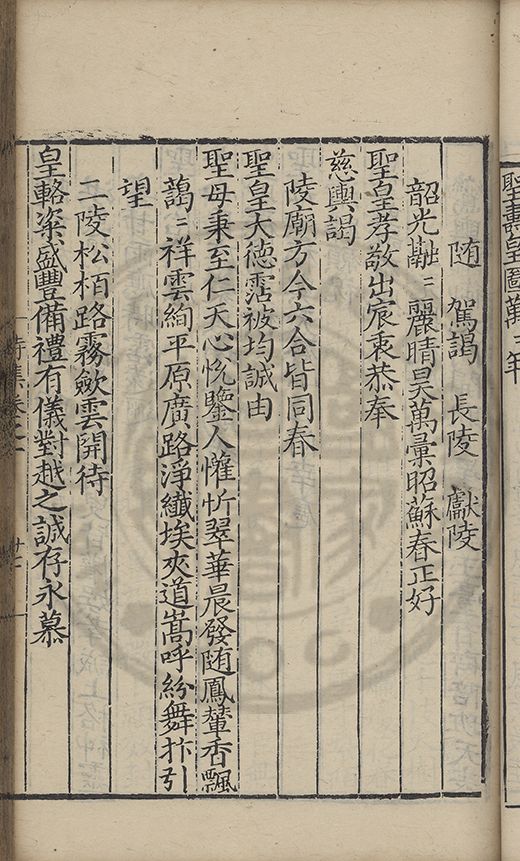 聖壽皇圖萬二年
随　駕謁　長陵　獻陵
韶光融〻麗晴昊萬彙昭蘇春正好
聖皇孝敬出宸衷恭奉
慈輿謁
陵廟方今六合皆同春
聖皇大德霑被均誠由
聖母秉至仁天心悦鑒人懽忻翠華晨發随鳳輦香飄
藹〻祥雲絢平原廣路淨纖埃夾道嵩呼紛舞抃引
望
二陵松栢路霧歛雲開待
皇輅粢盛豐備禮有儀對越之誠存永慕